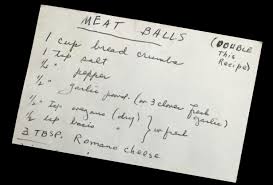 MEAT BALLS
(DOUBLE This Recipe)
1 cup bread crumbs
1 tsp salt
1/2 " pepper
1/2 " garlic powd. (or 3 cloves fresh garlic)
1/2 tsp oregano (dry) } or fresh
1/2 tsp basio
2 TBSP. Romano cheese